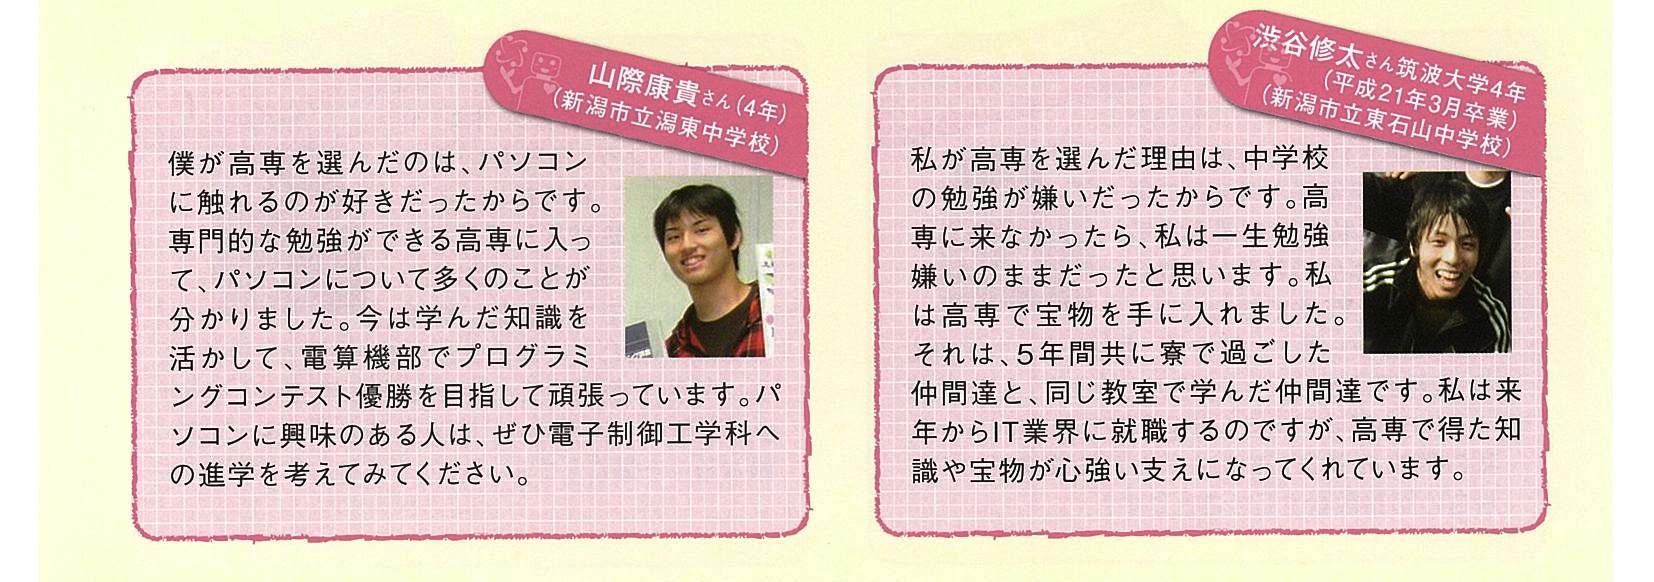 山際康貴さん（4年）
（新潟市立潟東中学校）
僕が高専を選んだのは、パソコン
に触れるのが好きだったからです。
専門的な勉強ができる高専に入っ
て、パソコンについて多くのことが
分かりました。今は学んだ知識を
活かして、電算機部でプログラミ
ングコンテスト優勝を目指して頑張っています。パ
ソコンに興味のある人は、ぜひ電子制御工学科へ
の進学を考えてみてください。
渋谷修太さん筑波大学4年
（平成21年3月卒業）
（新潟市立東石山中学校）
私が高専を選んだ理由は、中学校
の勉強が嫌いだったからです。高
専に来なかったら、私は一生勉強
嫌いのままだったと思います。私
は高専で宝物を手に入れました。
それは、5年間共に寮で過ごした
仲間達と、同じ教室で学んだ仲間達です。私は来
年からIT業界に就職するのですが、高専で得た知
識や宝物が心強い支えになってくれています。